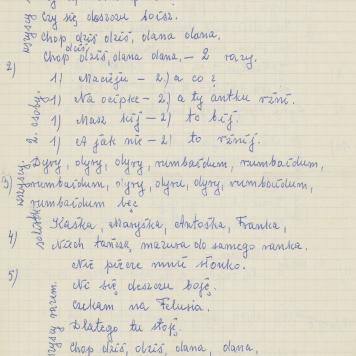 Czy się deszczu boisz.
Chop dziś dziś, dana dana.
Chop dziś, dziś, dana dana, - 2 razy.
2)
1) Macieju - 2) a co?
1) Na cipke - 2) a ty antku rżnij.
1) Masz kij - 2) to bij.
1) A jak nie - 2) to rżnij.
Dyry, dyry, dyry, rumbaidum, rumbaidum,
3) rumbaidum, dyry, dyry, dyry, rumbaidum,
rumbaidum bęc
Kaśka, Maryśka, Antośka, Franka,
4) Niech tańczą, mazura do samego ranka.
Nie piecze mnie słonko.
5) Nie się deszczu boję.
Czekam na Felusia.
Dlatego tu stoję.
Chop dziś, dziś, dana, dana,
wszyscy
2. osoby.
wszyscy.
solistka
wszyscy razem.